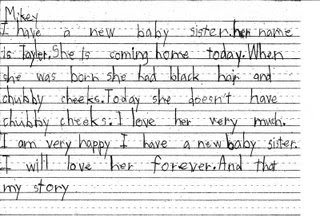 Mikey
I have a new baby sister.her name
is Tayler.She is coming home today.When
she was born she had black hair and
chubby cheeks.Today she doesn't have
chubby cheeks.I love her very much.
I am very happy I have a new baby sister.
I will love her forever.And that
my story